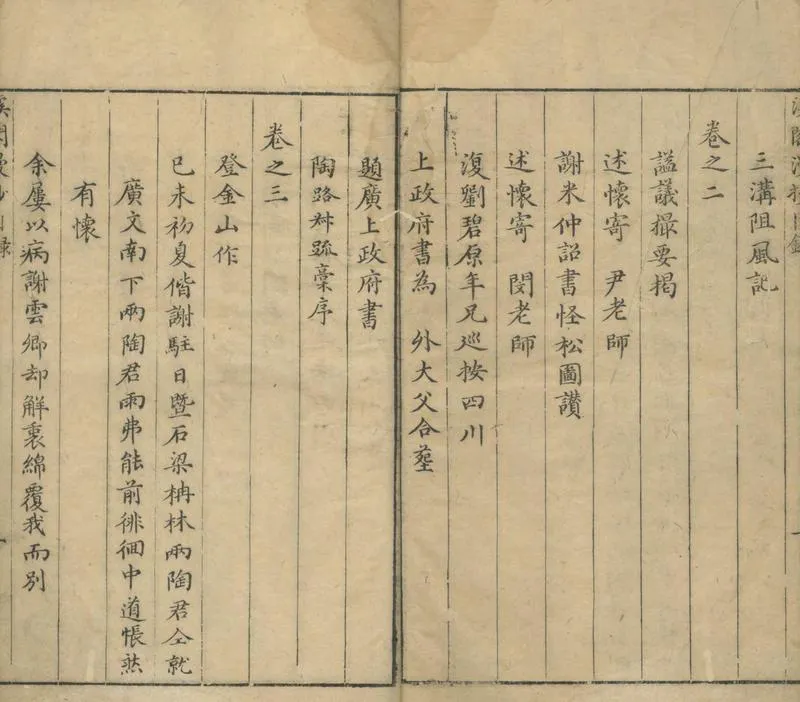 三溝阻風記
卷之二
謚議撮要揭
述懷寄 尹老師
謝米仲詔書怪松圖讃
述懷寄 閔老師
復劉碧原年兄巡按四川
上政府書為 外大父合塟
題廣上政府書
陶路叔疏稾序
卷之三
登金山作
已未初夏偕謝駐日暨石梁柟林兩陶君仝就
廣文南下兩陶君雨弗能前徘徊中道悵然
有懷
余屢以病謝雲卿却解裏綿覆我而別